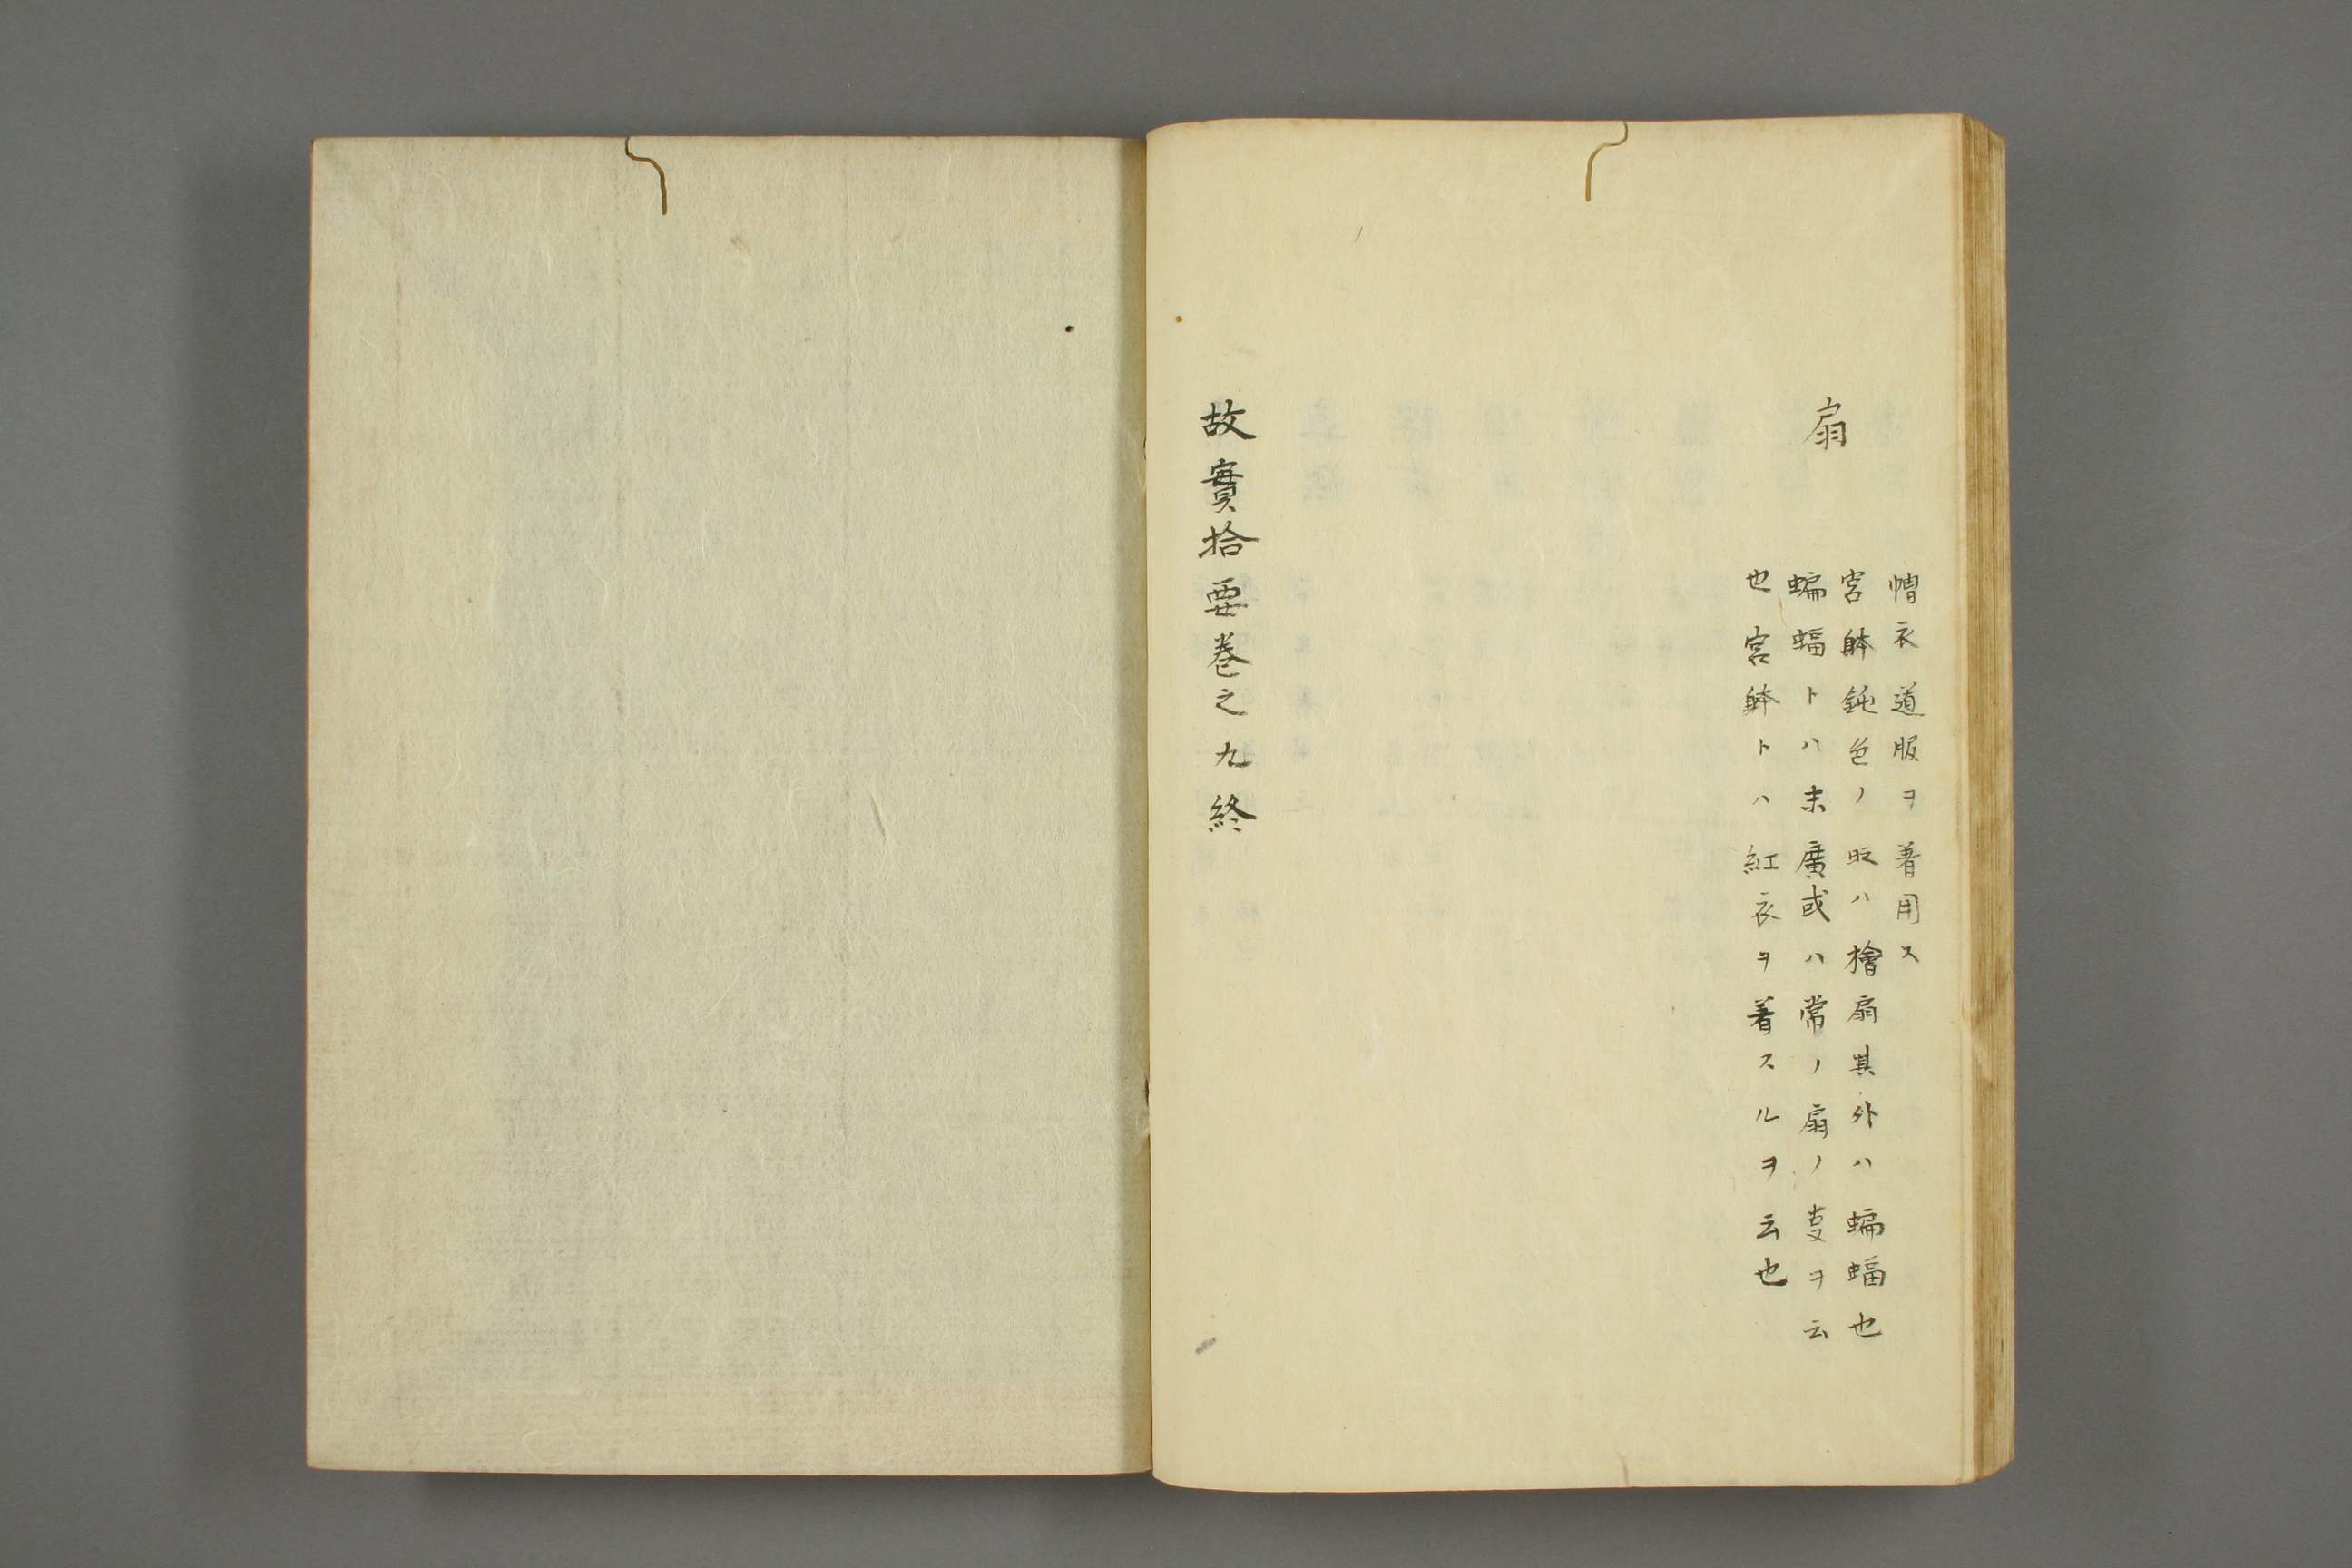 衣道服ヲ着用ス
扇
宮躰鈍色ノ時ハ檜扇其外ハ蝙蝠也
蝙蝠トハ末廣或ハ常ノ扇ノ叓ヲ云
也宮躰トハ紅衣ヲ着スルヲ云也
故實拾要巻之九終